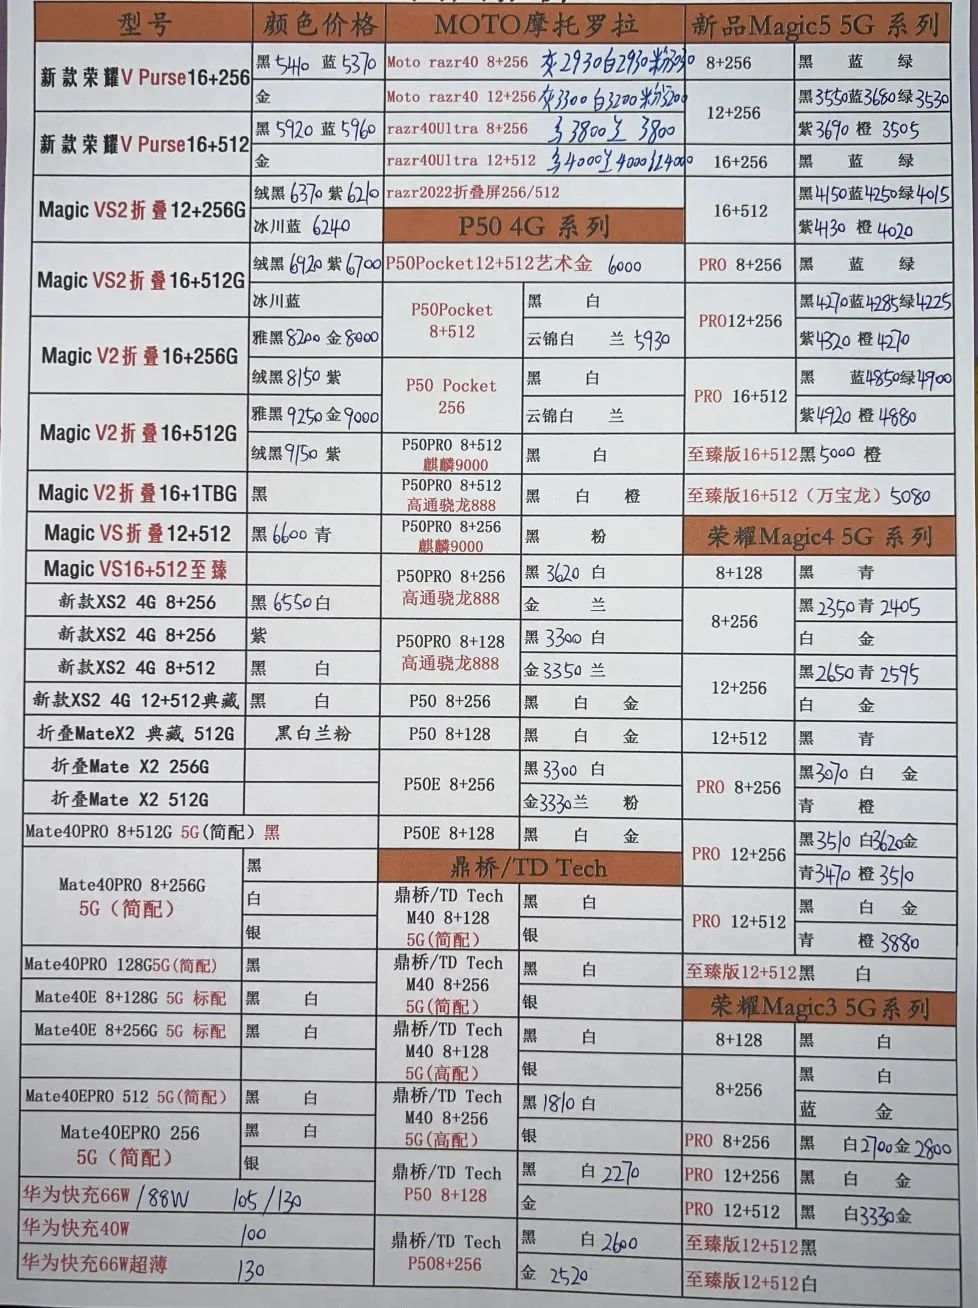 型号 颜色价格
新款荣耀V Purse16+256 黑5410 蓝5370
金
新款荣耀V Purse16+512 黑5920 蓝5960
金
Magic VS2折叠12+256G 绒黑6370 紫6210
冰川蓝 6240
Magic VS2折叠16+512G 绒黑6920 紫6700
冰川蓝
Magic V2折叠16+256G 雅黑8200 金8000
绒黑8150 紫
Magic V2折叠16+512G 雅黑9250 金9000
绒黑9150 紫
Magic V2折叠16+1TBG 黑
Magic VS折叠12+512 黑6600 青
Magic VS16+512至臻
新款XS2 4G 8+256 黑6550白
新款XS2 4G 8+256 紫
新款XS2 4G 8+512 黑 白
新款XS2 4G 12+512典藏 黑 白
折叠MateX2 典藏 512G 黑白兰粉
折叠Mate X2 256G
折叠Mate X2 512G
Mate40PRO 8+512G 5G(简配) 黑
Mate40PRO 8+256G 5G（简配） 黑
白
银
Mate40PRO 128G5G(简配) 黑
Mate40E 8+128G 5G 标配 黑 白
Mate40E 8+256G 5G 标配 黑 白
Mate40EPRO 512 5G(简配) 黑 白
Mate40EPRO 256 5G（简配） 黑 白
银
华为快充66W/88W 105/130
华为快充40W 100
华为快充66W超薄 130
MOTO摩托罗拉
Moto razr40 8+256 灰2930白2930粉3030
Moto razr40 12+256 灰3300 白3200粉3200
razr40Ultra 8+256 3800 兰 3800
razr40Ultra 12+512 4000兰4000红4000
razr2022折叠屏256/512
P50 4G 系列
P50Pocket12+512艺术金 6000
P50Pocket 8+512 黑 白
云锦白 兰 5930
P50 Pocket 256 黑 白
云锦白 兰
P50PRO 8+512 麒麟9000 黑 白
P50PRO 8+512 高通骁龙888 黑 白 橙
P50PRO 8+256 麒麟9000 黑 粉
P50PRO 8+256 高通骁龙888 黑3620 白
金 兰
P50PRO 8+128 高通骁龙888 黑3300 白
金3350兰
P50 8+256 黑 白 金
P50 8+128 黑 白 金
P50E 8+256 黑3300 白
金3330兰 粉
P50E 8+128 黑 白 金
鼎桥/TD Tech
鼎桥/TD Tech M40 8+128 5G(简配) 黑 白
银
鼎桥/TD Tech M40 8+256 5G(简配) 黑 白
银
鼎桥/TD Tech M40 8+128 5G(高配) 黑 白
银
鼎桥/TD Tech M40 8+256 5G(高配) 黑1810白
银
鼎桥/TD Tech P50 8+128 黑 白2270
金
鼎桥/TD Tech P508+256 黑 白2600
金 2520
新品Magic5 5G 系列
8+256 黑 蓝 绿
12+256 黑3550蓝3680绿3530
紫3690 橙 3505
16+256 黑 蓝 绿
16+512 黑4150蓝4250绿4015
紫4130 橙 4020
PRO 8+256 黑 蓝 绿
PRO12+256 黑4270蓝4285绿4225
紫4320 橙4270
PRO 16+512 黑 蓝4850绿4900
紫4920 橙4880
至臻版16+512黑5000 橙
至臻版16+512（万宝龙）5080
荣耀Magic4 5G 系列
8+128 黑 青
8+256 黑2350青 2405
白 金
12+256 黑2650青 2595
白 金
12+512 黑 青
PRO 8+256 黑3070 白 金
青 橙
PRO 12+256 黑3510 白3620金
青3470 橙3510
PRO 12+512 黑 白 金
青 橙3880
至臻版12+512黑 白
荣耀Magic3 5G系列
8+128 黑 白
8+256 黑 白
蓝 金
PRO 8+256 黑 白2700金2800
PRO 12+256 黑 白 金
PRO 12+512 黑 白3330金
至臻版12+512黑
至臻版12+512白